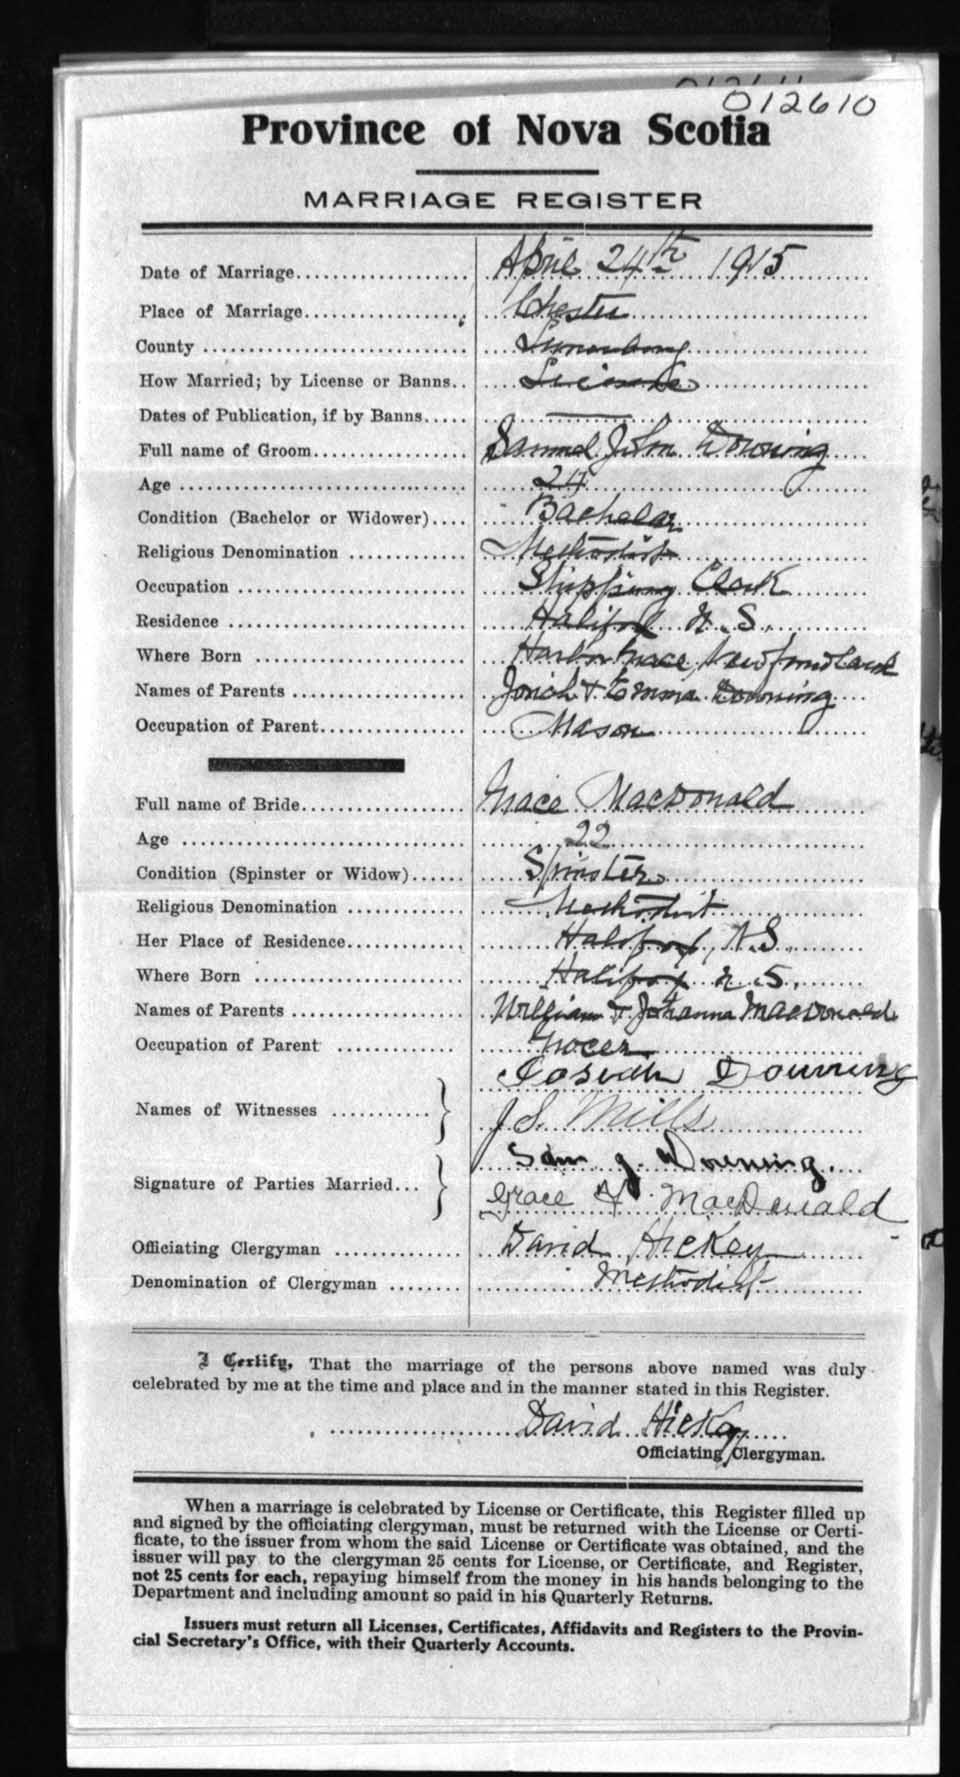 012610
Province of Nova Scotia
MARRIAGE REGISTER
Date of Marriage.................... April 24th 1915
Place of Marriage................... Chester
County .............................. Lunenburg
How Married; by License or Banns.. License
Dates of Publication, if by Banns..... ——
Full name of Groom.................. Samuel John Downing
Age .................................. 24
Condition (Bachelor or Widower).... Bachelor
Religious Denomination ............. Methodist
Occupation .......................... Shipping Clerk
Residence ........................... Halifax N.S.
Where Born ........................ Harbor Grace, Newfoundland
Names of Parents ................... Josiah & Emma Downing
Occupation of Parent................. Mason
Full name of Bride................... Grace MacDonald
Age ................................. 22
Condition (Spinster or Widow)...... Spinster
Religious Denomination ............. Methodist
Her Place of Residence.............. Halifax, N.S.
Where Born ........................ Halifax N.S.
Names of Parents ................... William & Johanna MacDonald
Occupation of Parent .............. Grocer
Names of Witnesses ........... } Josiah Downing
J. S. Mills
Signature of Parties Married... } Sam J. Downing.
Grace MacDonald
Officiating Clergyman ............. David Hickey
Denomination of Clergyman ........ Methodist
I Certify, That the marriage of the persons above named was duly
celebrated by me at the time and place and in the manner stated in this Register.
David Hickey
Officiating Clergyman.
When a marriage is celebrated by License or Certificate, this Register filled up
and signed by the officiating clergyman, must be returned with the License or Certi-
ficate, to the issuer from whom the said License or Certificate was obtained, and the
issuer will pay to the clergyman 25 cents for License, or Certificate, and Register,
not 25 cents for each, repaying himself from the money in his hands belonging to the
Department and including amount so paid in his Quarterly Returns.
Issuers must return all Licenses, Certificates, Affidavits and Registers to the Provin-
cial Secretary's Office, with their Quarterly Accounts.